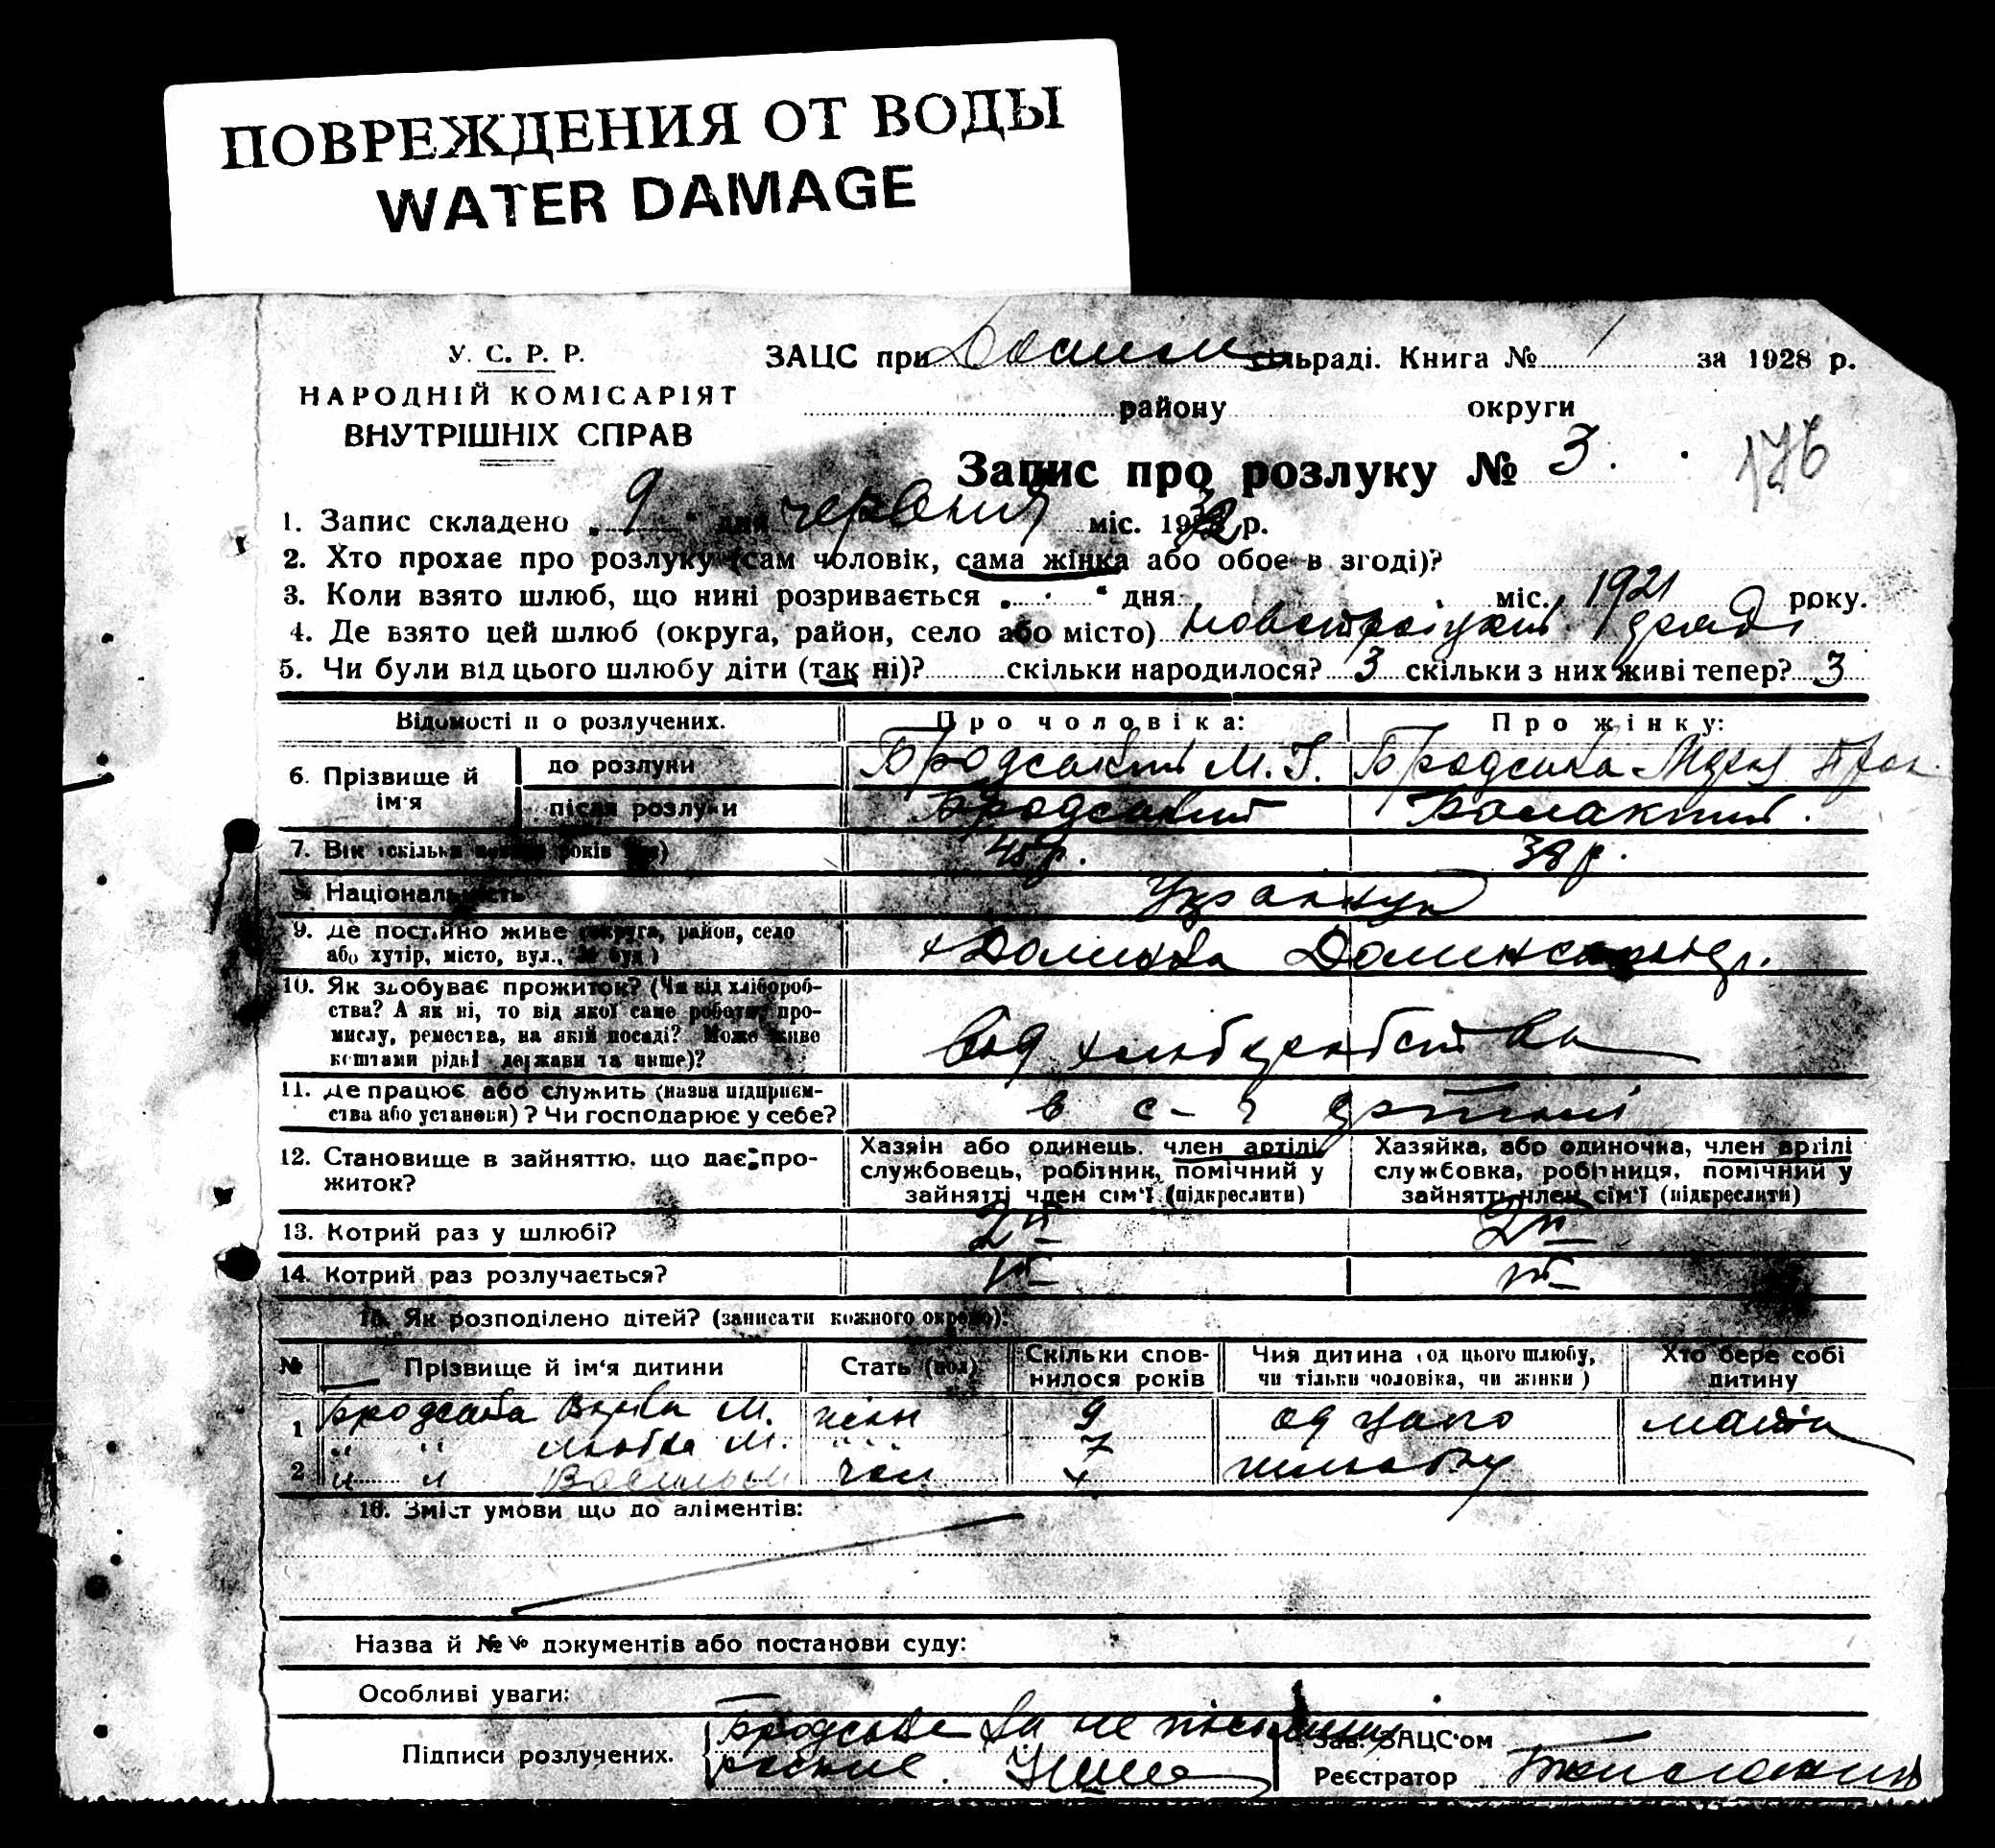 ПОВРЕЖДЕНИЯ ОТ ВОДЫ
WATER DAMAGE
У. С. Р. Р.
НАРОДНІЙ КОМІСАРІЯТ
ВНУТРІШНІХ СПРАВ
ЗАЦС при сільраді. Книга № 1 за 1928 р.
району округи
Запис про розлуку № 3.
176
1. Запис складено „ 9 “ дня червня міс. 1932 р.
2. Хто прохає про розлуку (сам чоловік, сама жінка або обоє в згоді)?
3. Коли взято шлюб, що нині розривається „ “ дня міс. 1921 року.
4. Де взято цей шлюб (округа, район, село або місто)
5. Чи були від цього шлюбу діти (так ні)? скільки народилося? 3 скільки з них живі тепер? 3
Відомості п о розлучених. Про чоловіка: Про жінку:
6. Прізвище й ім'я до розлуки Бродський М. І. Бродська
після розлуки Бродський
7. Вік (скільки років) 45 р. 38 р.
8. Національність
9. Де постійно живе (округа, район, село
або хутір, місто, вул., № буд.)
10. Як здобуває прожиток? (Чи від хлібороб-
ства? А як ні, то від якої саме роботи, про-
мислу, ремества, на якій посаді? Може живе
коштами рідні держави та инше)?
Від хліборобства
11. Де працює або служить (назва підприєм-
ства або установи)? Чи господарює у себе?
в с-г артілі
12. Становище в зайняттю, що дає про-
житок?
Хазяїн або одинець, член артілі,
службовець, робітник, помічний у
зайнятті член сім'ї (підкреслити)
Хазяйка, або одиночка, член артілі
службовка, робітниця, помічний у
зайнятті член сім'ї (підкреслити)
13. Котрий раз у шлюбі? 2й 2й
14. Котрий раз розлучається? 1й 1й
15. Як розподілено дітей? (записати кожного окремо):
№ Прізвище й ім'я дитини Стать (пол) Скільки спов-
нилося років Чия дитина (од цього шлюбу,
чи тільки чоловіка, чи жінки) Хто бере собі
дитину
1 Бродська М. жін 9 од цього мати
" " Любка М. " 7 шлюбу
2 " " Василь чол 4
16. Зміст умови що до аліментів:
Назва й №№ документів або постанови суду:
Особливі уваги:
Підписи розлучених. Бродська
Зав. ЗАЦС'ом
Реєстратор